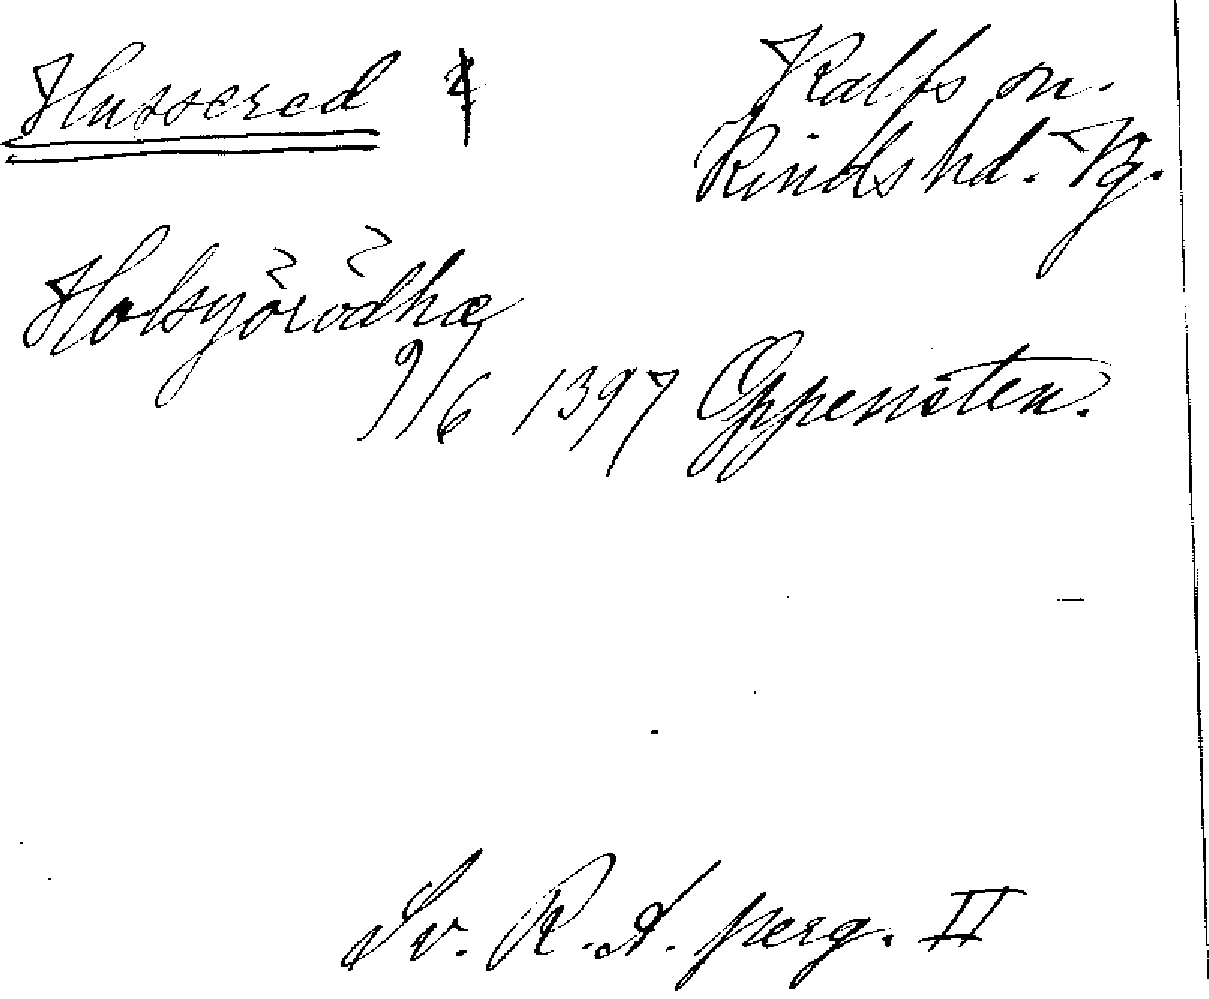 Hussered
Kalfs sn.
Kinds hd. Vg.
Holsyörödhæ
9/6 1397 Oppensten.
Sv. R.A. perg. II